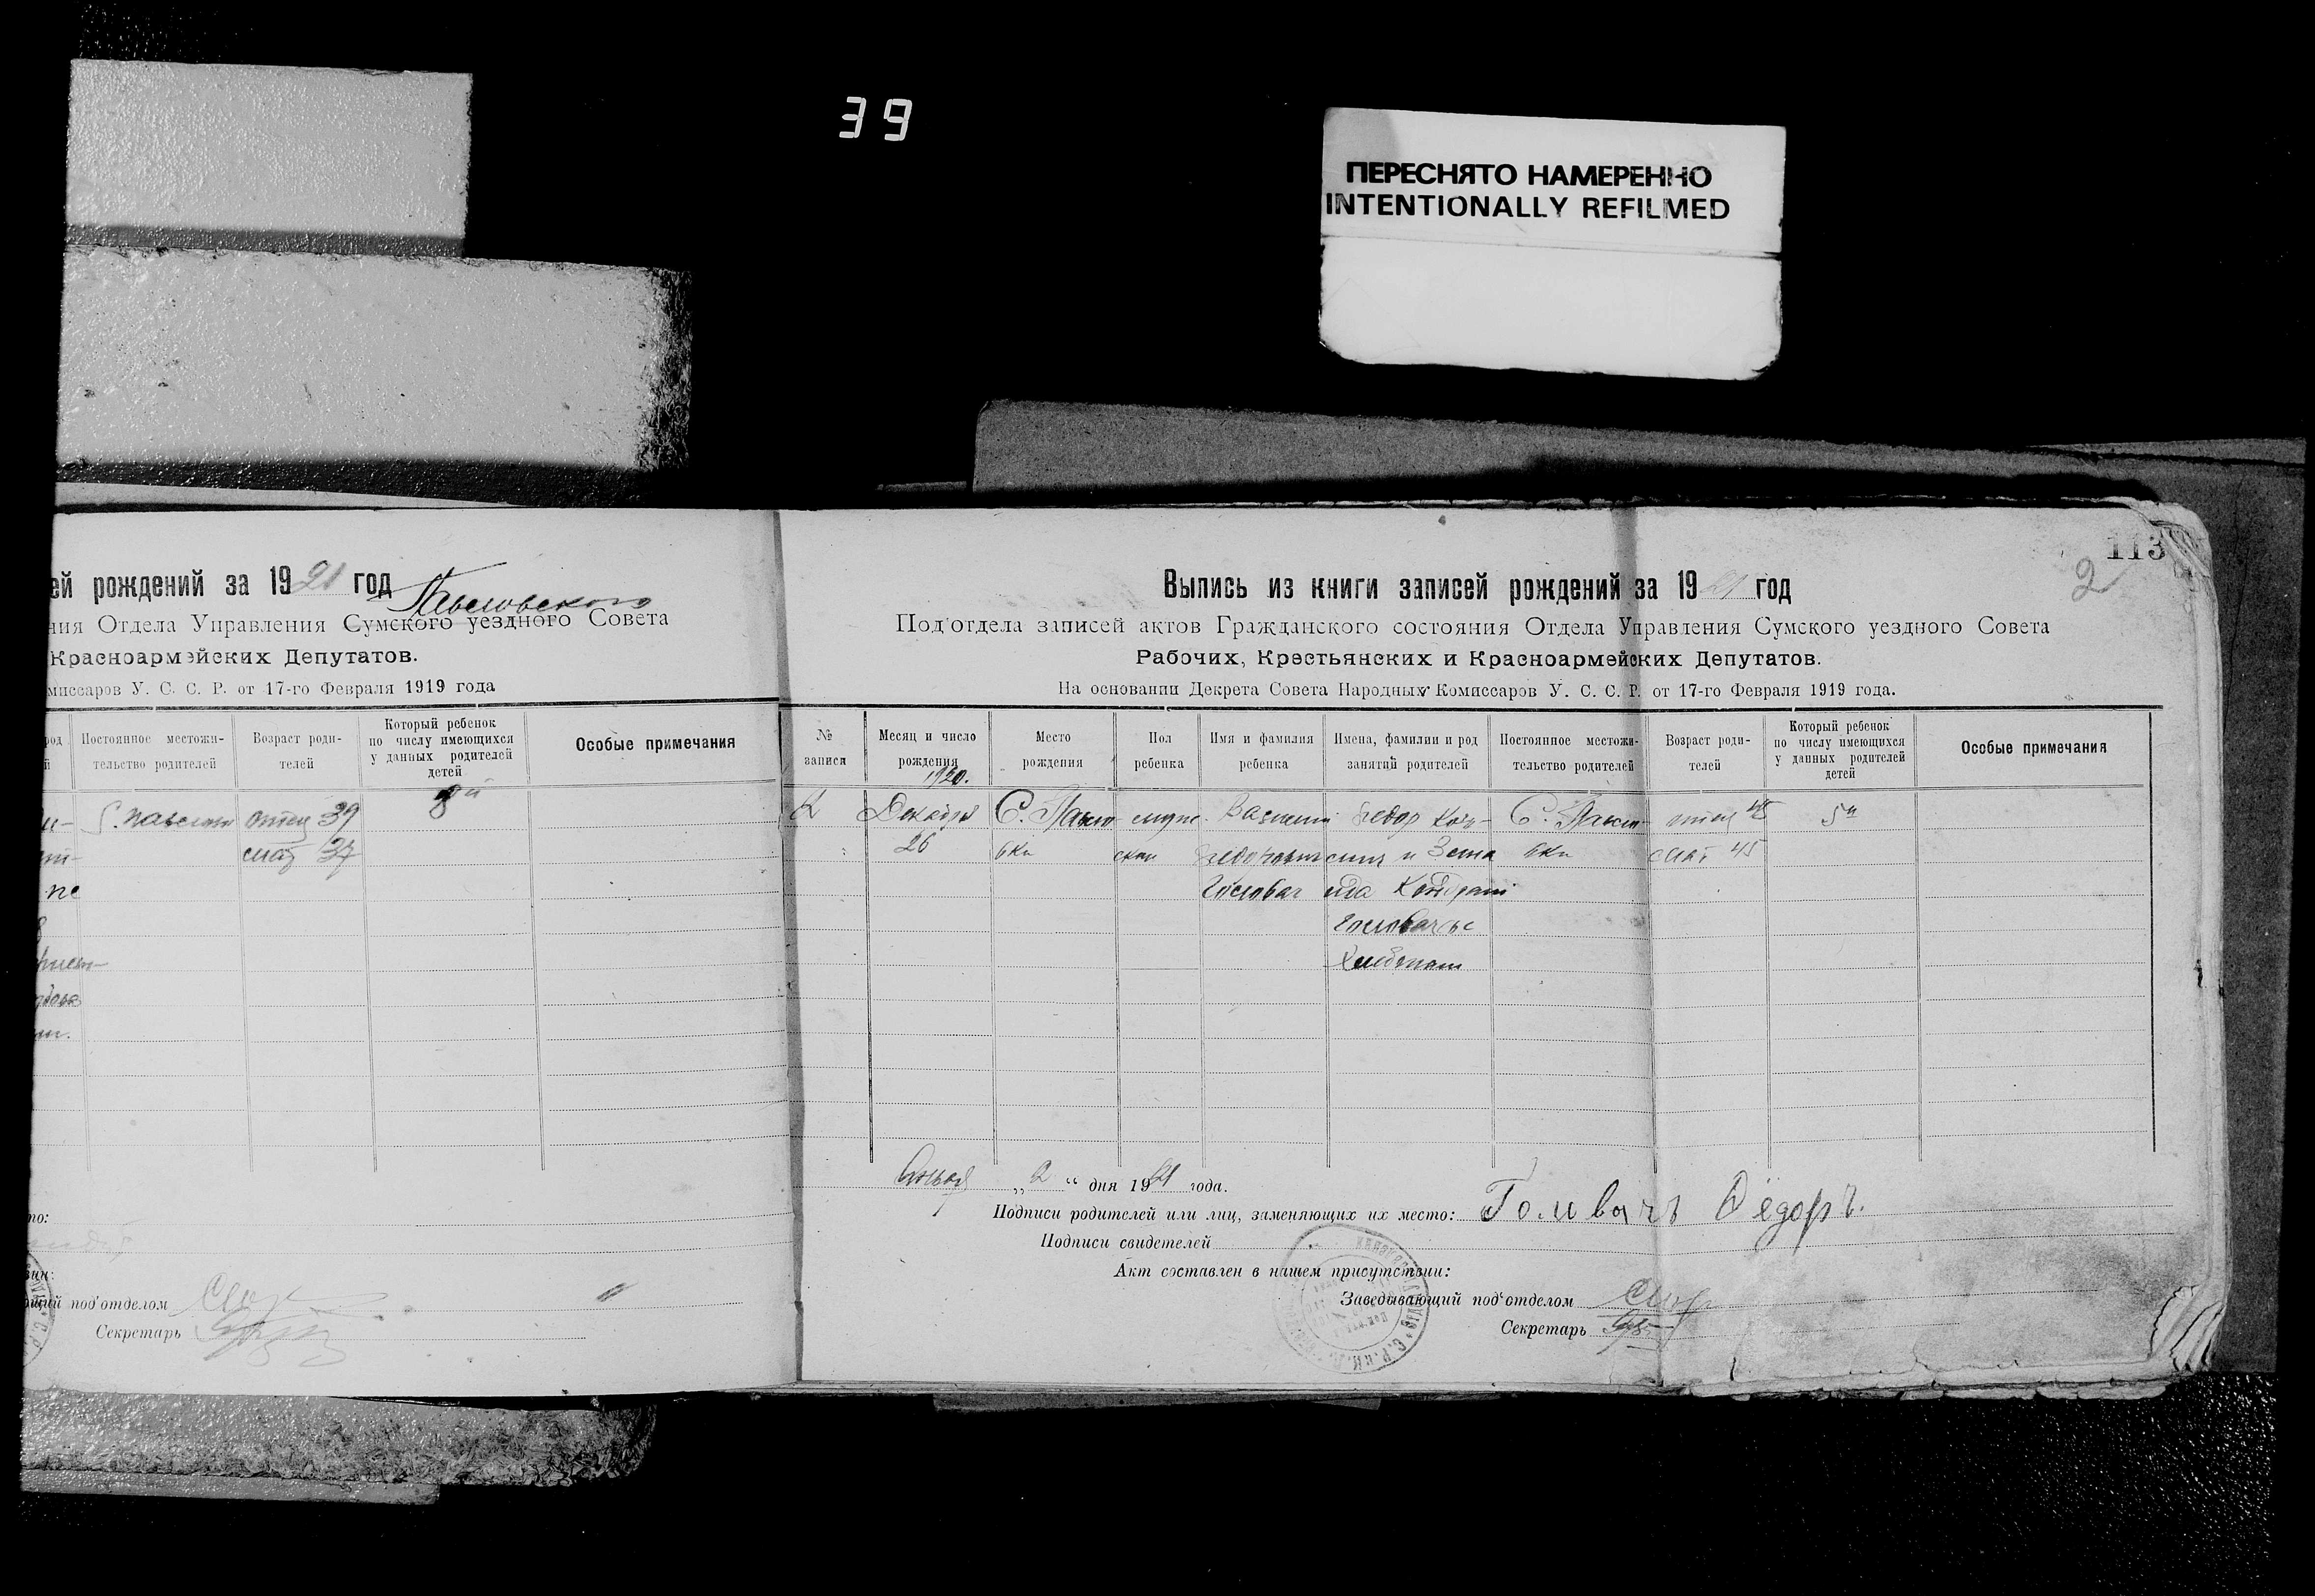 39
ПЕРЕСНЯТО НАМЕРЕННО
INTENTIONALLY REFILMED
ей рождений за 1921 год
Павловского
ния Отдела Управления Сумского уездного Совета
Красноармейских Депутатов.
миссаров У. С. С. Р. от 17-го Февраля 1919 года
род
й
Постоянное местожи-
тельство родителей
Возраст роди-
телей
Который ребенок
по числу имеющихся
у данных родителей
детей
Особые примечания
отец 39
8й
мать 37
то:
щий под'отделом
Секретарь
113
2
Выпись из книги записей рождений за 1921 год
Под'отдела записей актов Гражданского состояния Отдела Управления Сумского уездного Совета
Рабочих, Крестьянских и Красноармейских Депутатов.
На основании Декрета Совета Народных Комиссаров У. С. С. Р. от 17-го Февраля 1919 года.
№
записи
Месяц и число
рождения
Место
рождения
Пол
ребенка
Имя и фамилия
ребенка
Имена, фамилии и род
занятий родителей
Постоянное местожи-
тельство родителей
Возраст роди-
телей
Который ребенок
по числу имеющихся
у данных родителей
детей
Особые примечания
1920.
2 Декабря С. Павло- муж- Василий Федор С. Павло- отец 45 5й
26 вки ской вки мать 45
Головач
Января „2“ дня 1921 года.
Подписи родителей или лиц, заменяющих их место: Головачъ Фёдоръ.
Подписи свидетелей
Акт составлен в нашем присутствии:
Заведывающий под'отделом
Секретарь